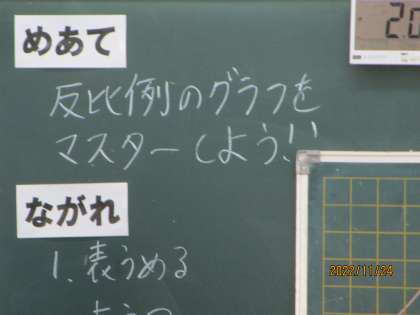 めあて
反比例のグラフを
マスターしよう!!
ながれ
1. 表うめる
2.0
2022/11/24